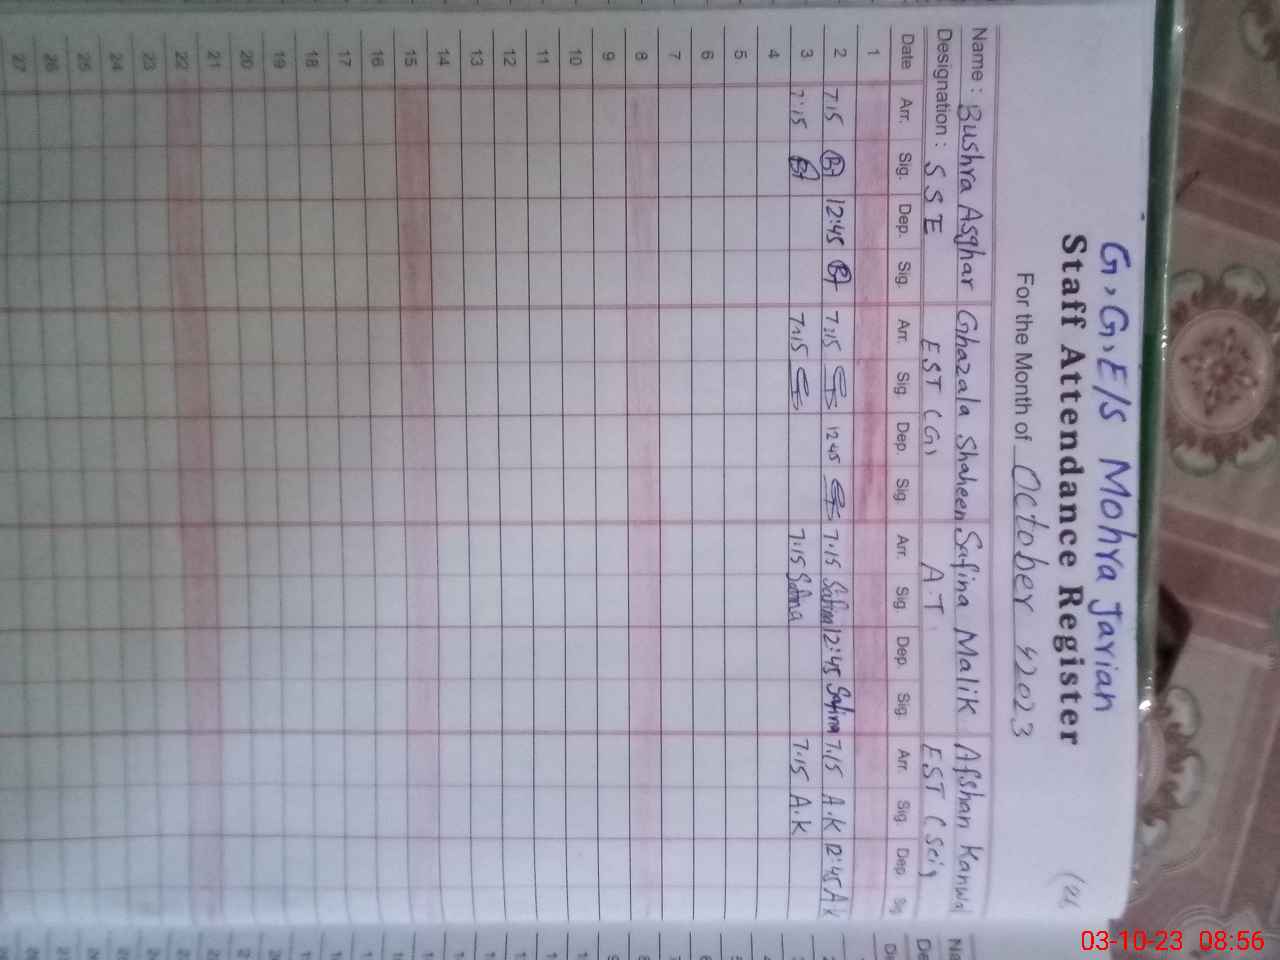 G.G.E/S Mohra Jarian
Staff Attendance Register
For the Month of October 2023
Name : Bushra Asghar Ghazala Shaheen Safina Malik Afshan Kanwal
Designation : S S E EST (G) A.T EST (Sci)
Date Arr. Sig. Dep. Sig. Arr. Sig. Dep. Sig. Arr. Sig. Dep. Sig. Arr. Sig. Dep. Sig.
1
2 7.15 12:45 7:15 12 45 7.15 Safina 12:45 Safina 7.15 A.K 12:45 A.K
3 7:15 7:15 7.15 Safina 7.15 A.K
4
5
6
7
8
9
10
11
12
13
14
15
16
17
18
19
20
21
22
23
24
25
26
27
03-10-23 08:56